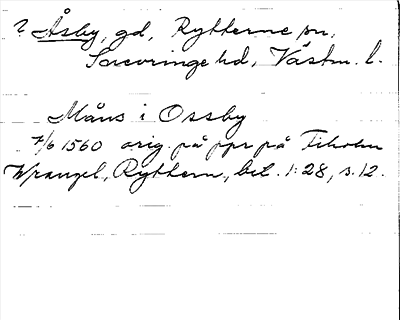 ? Åsby, gd, Rytterne sn,
Snevringe hd, Västm. l.
Måns i Ossby
7/6 1560 orig. på ppr på Tidholm
Wrangel, Ryttern, bil. 1:28, s. 12.